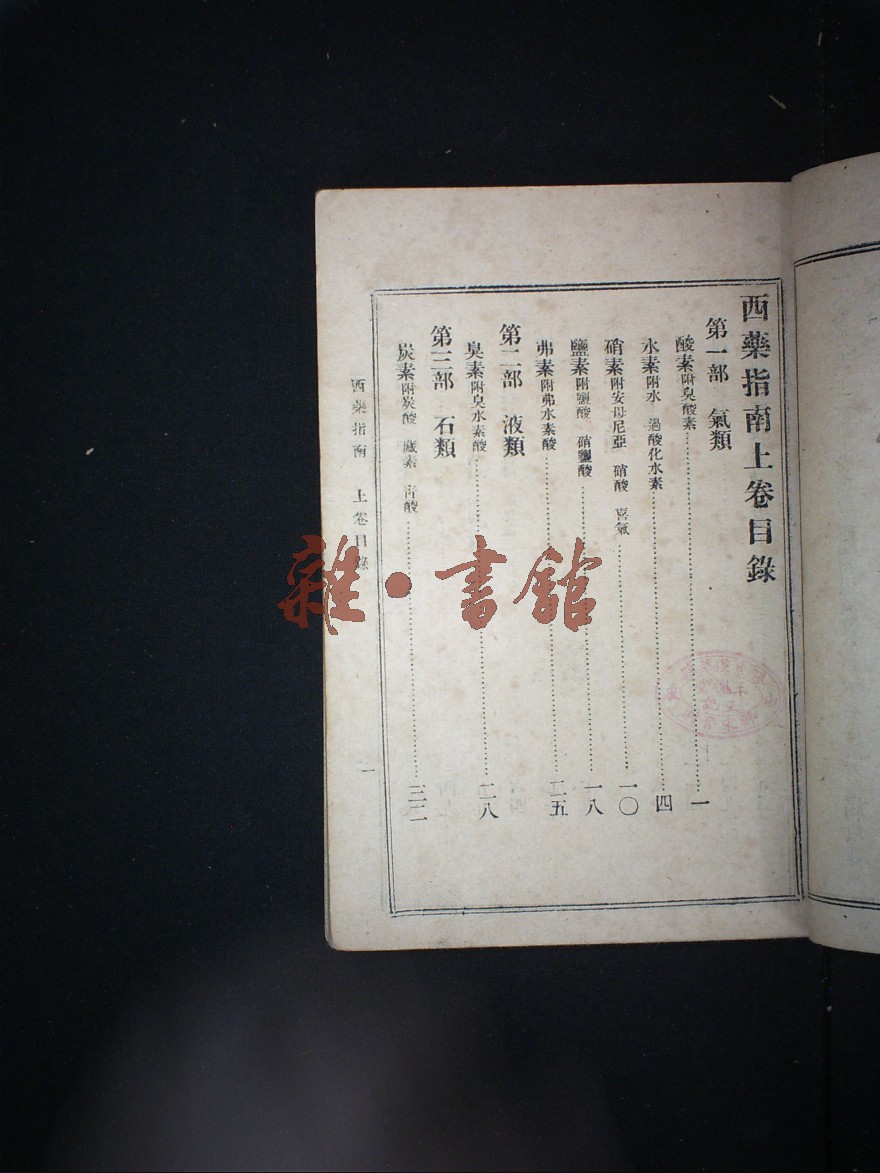 西藥指南上卷目錄
第一部　氣類
酸素附臭酸素……一
水素附水　過酸化水素……四
硝素附安母尼亞　硝酸　喜氣……一〇
鹽素附鹽酸　硝鹽酸……一八
弗素附弗水素酸……二五
第二部　液類
臭素附臭水素酸……二八
第三部　石類
炭素附炭酸　臟素　　酸……三二
西藥指南　上卷目錄　一
雜·書館